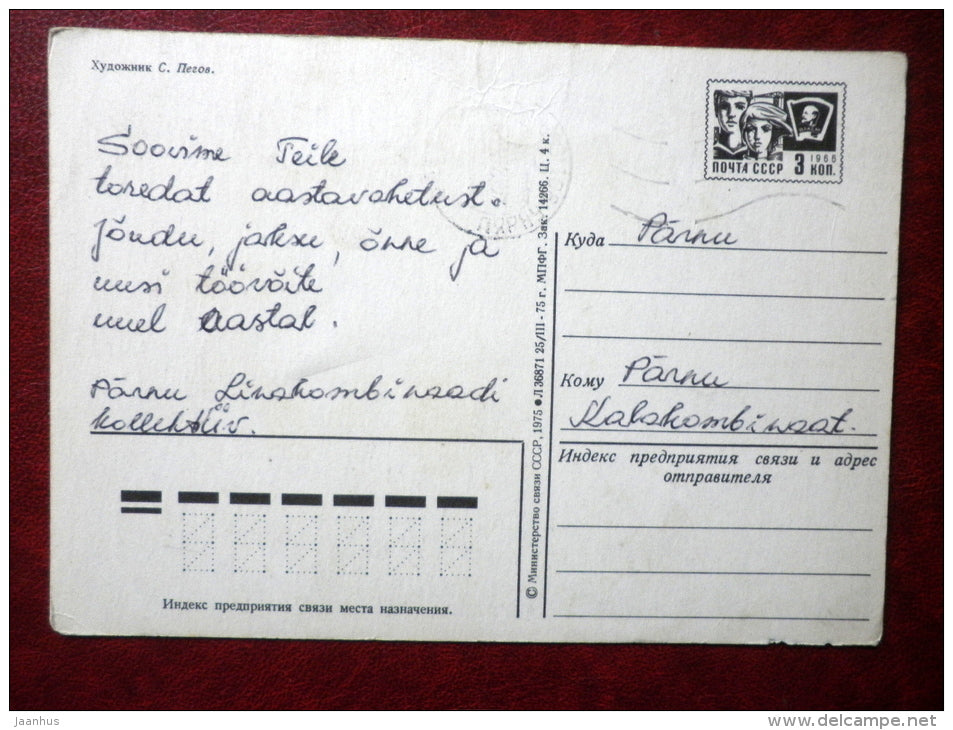 Художник С. Пегов.
Soovime Teile
toredat aastavahetust.
Jõudu, jaksu, õnne ja
uusi töövõite
uuel aastal.
Pärnu Linakombinaadi
kollektiiv.
Индекс предприятия связи места назначения.
© Министерство связи СССР, 1975 ● Л 36871 25/III - 75 г. МПФГ. Зак. 14266. Ц. 4 к.
ПОЧТА СССР 3 КОП.
1966
ПЯРНУ
Куда Pärnu
Кому Pärnu
Kalakombinaat.
Индекс предприятия связи и адрес
отправителя
Jaanhus
www.delcampe.net